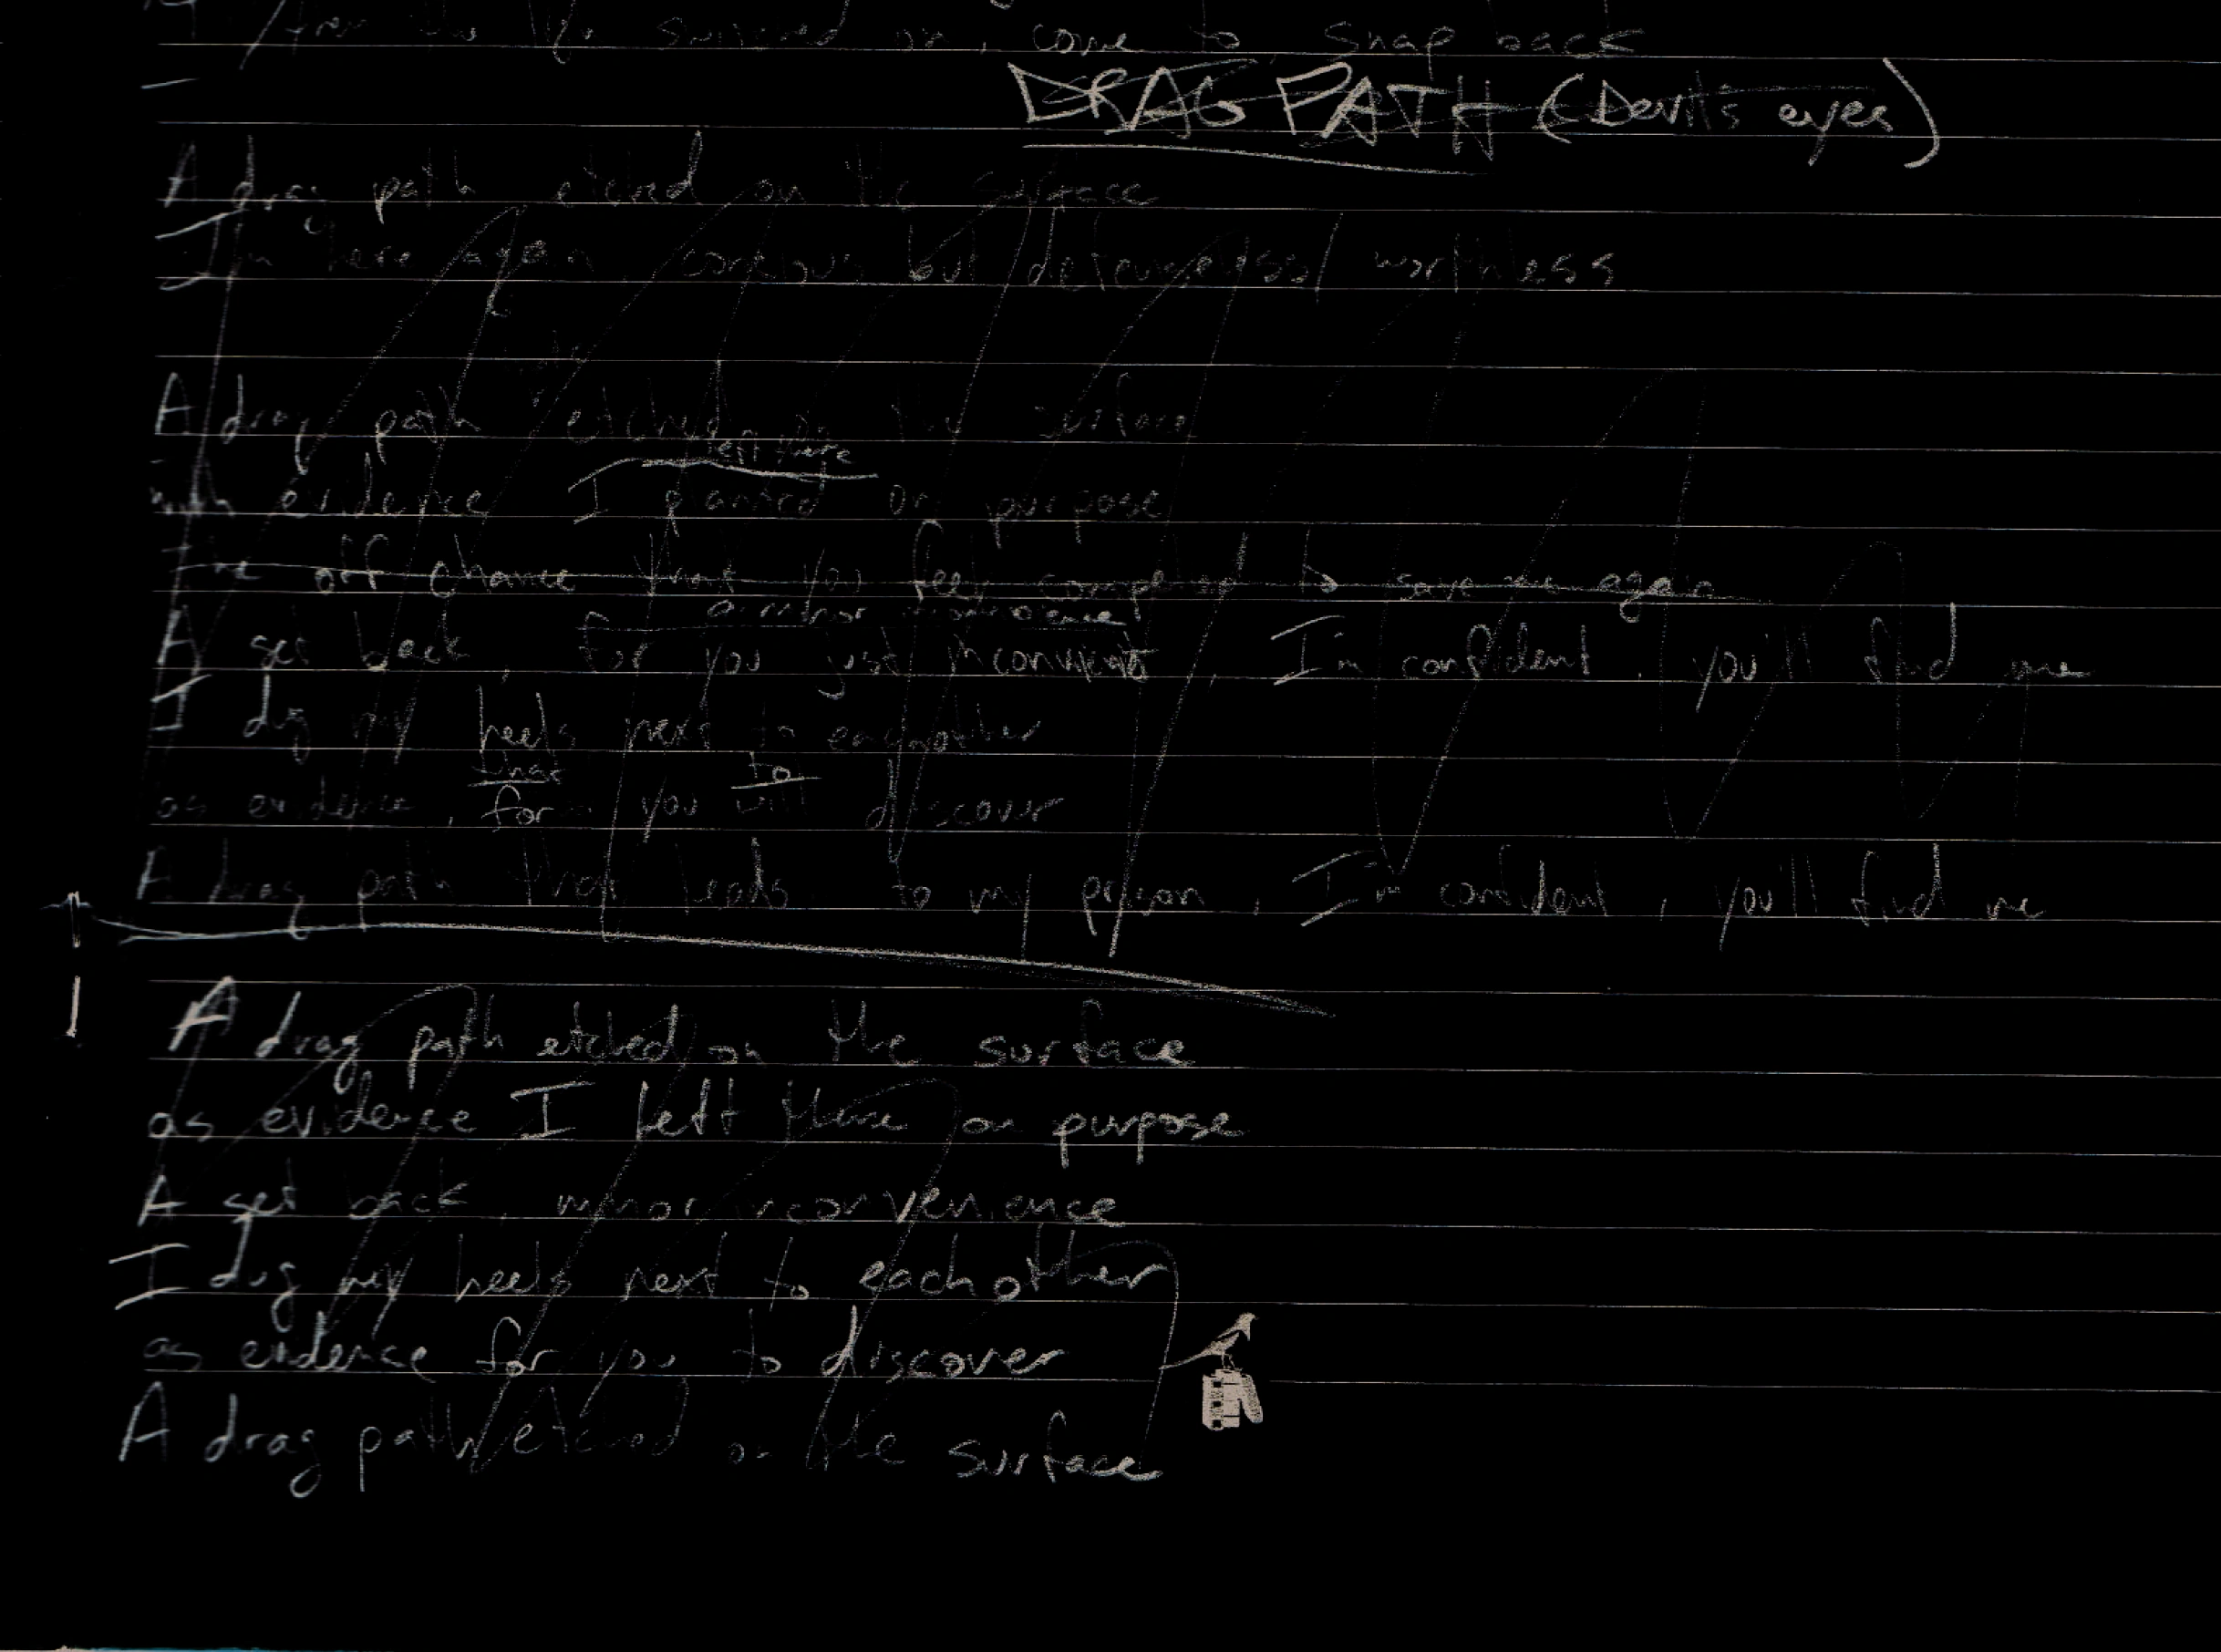 from the life summed on, come to snap back
DRAG PATH (Devil's eyes)
A drag path etched on the surface
I'm here again, consious but defenseless/ worthless
A drag path etched on the surface
left there
with evidence I planted on purpose
the off chance that you feel compelled to save me again
a minor inconvenience
A set back, for you just inconvenient, I'm confident, you'll find me
I dug my heels next to eachother
that to
as evidence, for you will discover
A drag path that leads to my prison, I'm confident, you'll find me
A drag path etched on the surface
as evidence I left there on purpose
A set back, minor inconvenience
I dug my heels next to eachother
as evidence for you to discover
A drag path etched on the surface